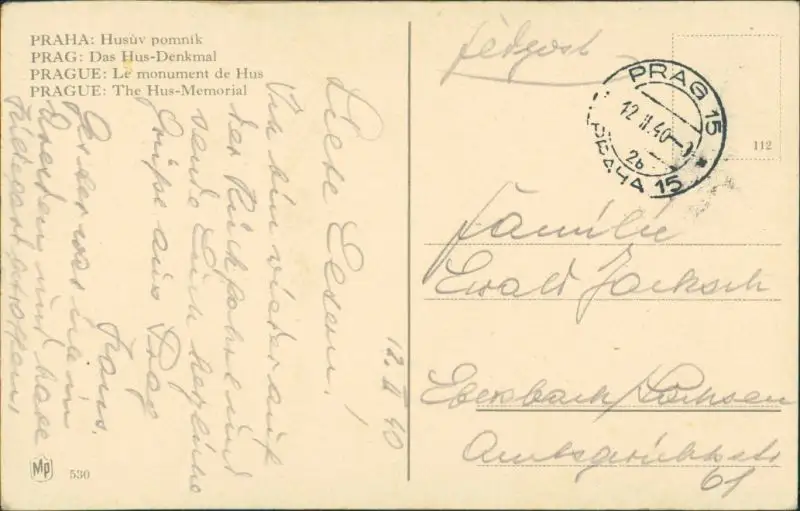 PRAHA: Husův pomník
PRAG: Das Hus-Denkmal
PRAGUE: Le monument de Hus
PRAGUE: The Hus-Memorial
12. II 40
Liebe Eltern!
Ich bin wieder auf
der Rückfahrt und
sende Euch herzliche
Grüße aus Prag
Hans.
Gestern war ich in
Dresden und habe
getroffen.
Mp
530
Feldpost
PRAG 15
12. II. 40
2b
PRAHA 15
112
Familie
Ewald Jacksch
Ebersbach/Sachsen
Amtsgerichtsstr
61